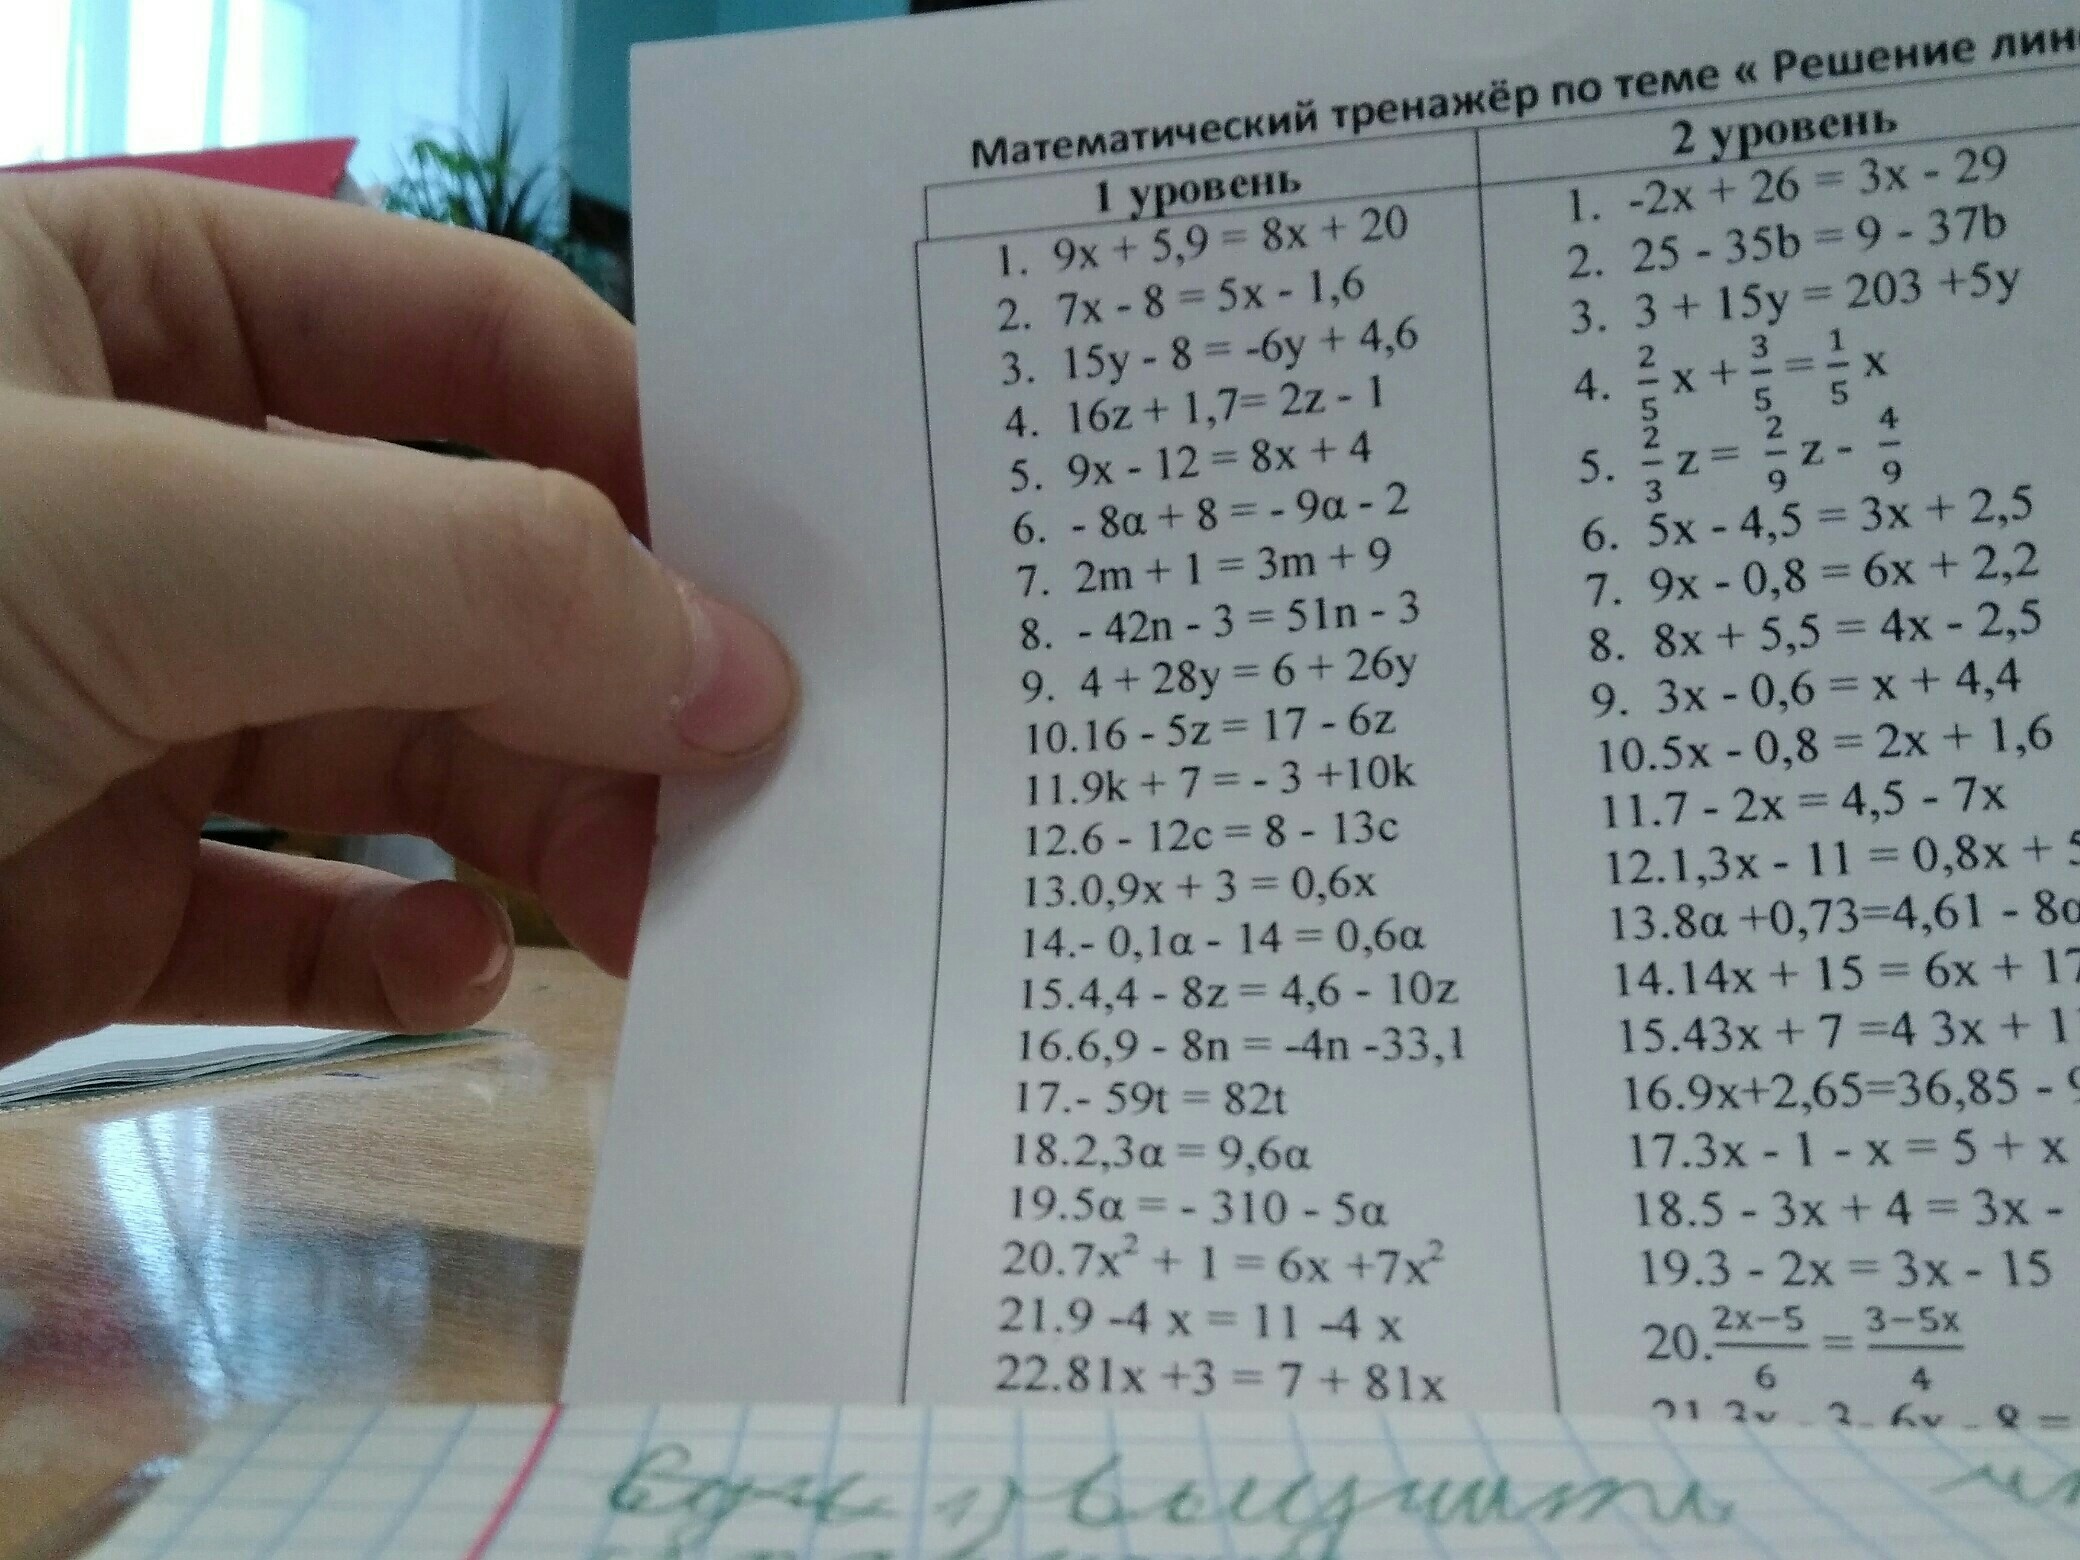 Математический тренажёр по теме « Решение
1 уровень
1. 9x + 5,9 = 8x + 20
2. 7x - 8 = 5x - 1,6
3. 15y - 8 = -6y + 4,6
4. 16z + 1,7= 2z - 1
5. 9x - 12 = 8x + 4
6. - 8α + 8 = - 9α - 2
7. 2m + 1 = 3m + 9
8. - 42n - 3 = 51n - 3
9. 4 + 28y = 6 + 26y
10.16 - 5z = 17 - 6z
11.9k + 7 = - 3 +10k
12.6 - 12c = 8 - 13c
13.0,9x + 3 = 0,6x
14.- 0,1α - 14 = 0,6α
15.4,4 - 8z = 4,6 - 10z
16.6,9 - 8n = -4n -33,1
17.- 59t = 82t
18.2,3α = 9,6α
19.5α = - 310 - 5α
20.7x² + 1 = 6x +7x²
21.9 -4 x = 11 -4 x
22.81x +3 = 7 + 81x
2 уровень
1. -2x + 26 = 3x - 29
2. 25 - 35b = 9 - 37b
3. 3 + 15y = 203 +5y
4. 2/5 x + 3/5 = 1/5 x
5. 2/3 z = 2/9 z - 4/9
6. 5x - 4,5 = 3x + 2,5
7. 9x - 0,8 = 6x + 2,2
8. 8x + 5,5 = 4x - 2,5
9. 3x - 0,6 = x + 4,4
10.5x - 0,8 = 2x + 1,6
11.7 - 2x = 4,5 - 7x
12.1,3x - 11 = 0,8x +
13.8α +0,73=4,61 -
14.14x + 15 = 6x +
15.43x + 7 =4 3x +
16.9x+2,65=36,85 -
17.3x - 1 - x = 5 + x
18.5 - 3x + 4 = 3x -
19.3 - 2x = 3x - 15
20. 2x−5/6 = 3−5x/4